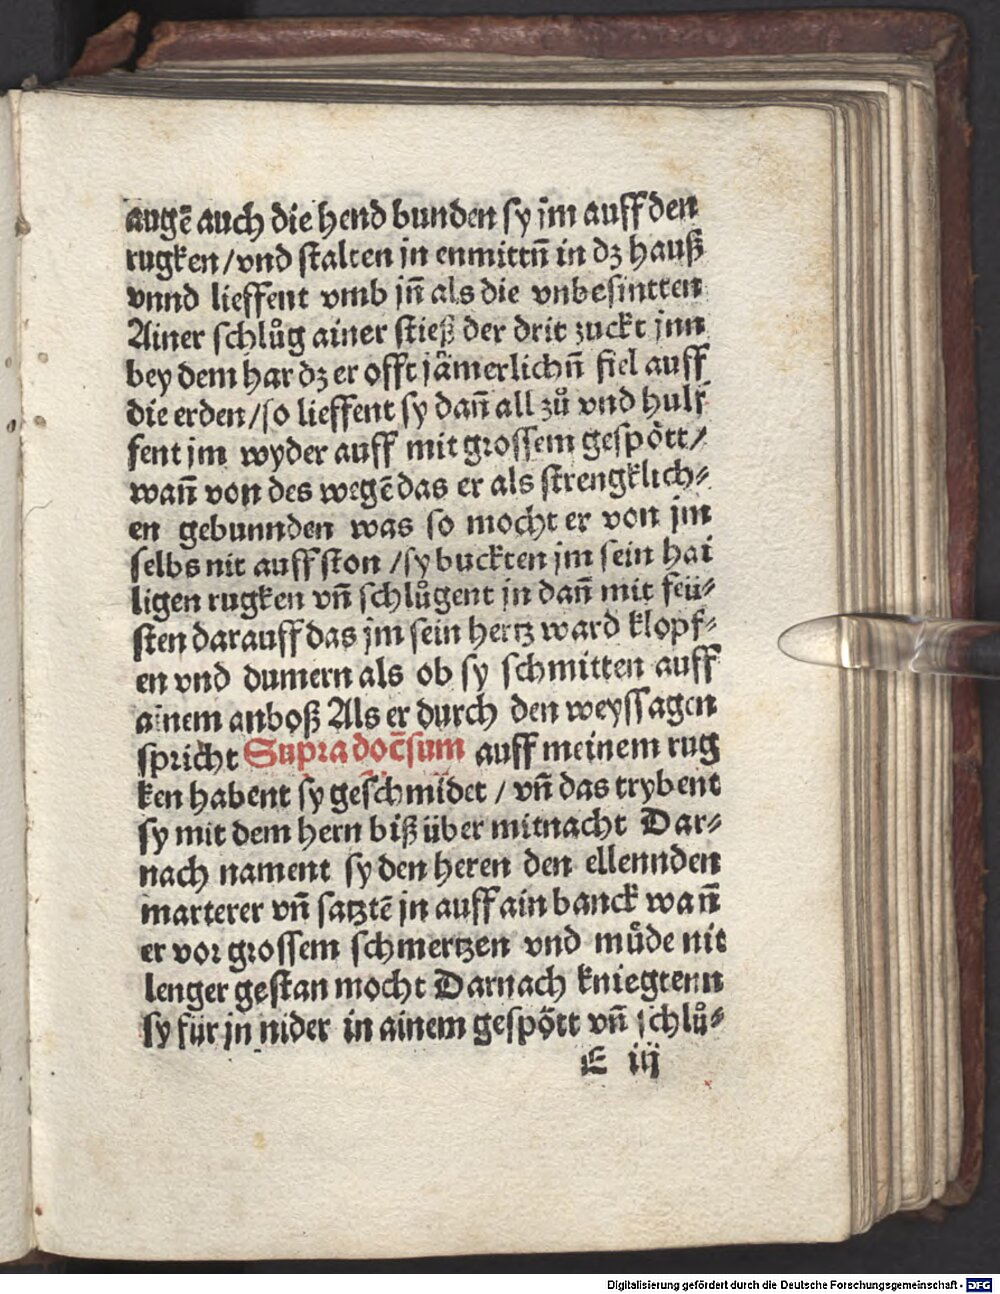 augē auch die hend bunden sy jm auff den
rugken / vnd stalten jn enmittn̄ in dz hauß
vnnd lieffent vmb jn̄ als die vnbesintten
Ainer schlůg ainer stieß der drit zuckt jnn
bey dem har dz er offt jämerlichn̄ fiel auff
die erden / so lieffent sy dan̄ all zů vnd hulf
fent jm wyder auff mit grossem gespött /
wan̄ von des wegē das er als strengklich⸗
en gebunnden was so mocht er von jm
selbs nit auff ston / sy buckten jm sein hai
ligen rugken vn̄ schlůgent jn dan̄ mit feü⸗
sten darauff das jm sein hertz ward klopf⸗
en vnd dumern als ob sy schmitten auff
ainem anboß Als er durch den weyssagen
spricht Supra doc̄sum auff meinem rug
ken habent sy geschmidet / vn̄ das trybent
sy mit dem hern biß über mitnacht Dar⸗
nach nament sy den heren den ellennden
marterer vn̄ satztē jn auff ain banck wan̄
er vor grossem schmertzen vnd müde nit
lenger gestan mocht Darnach kniegtenn
sy für jn nider in ainem gespött vn̄ schlů⸗
E iij
Digitalisierung gefördert durch die Deutsche Forschungsgemeinschaft - DFG